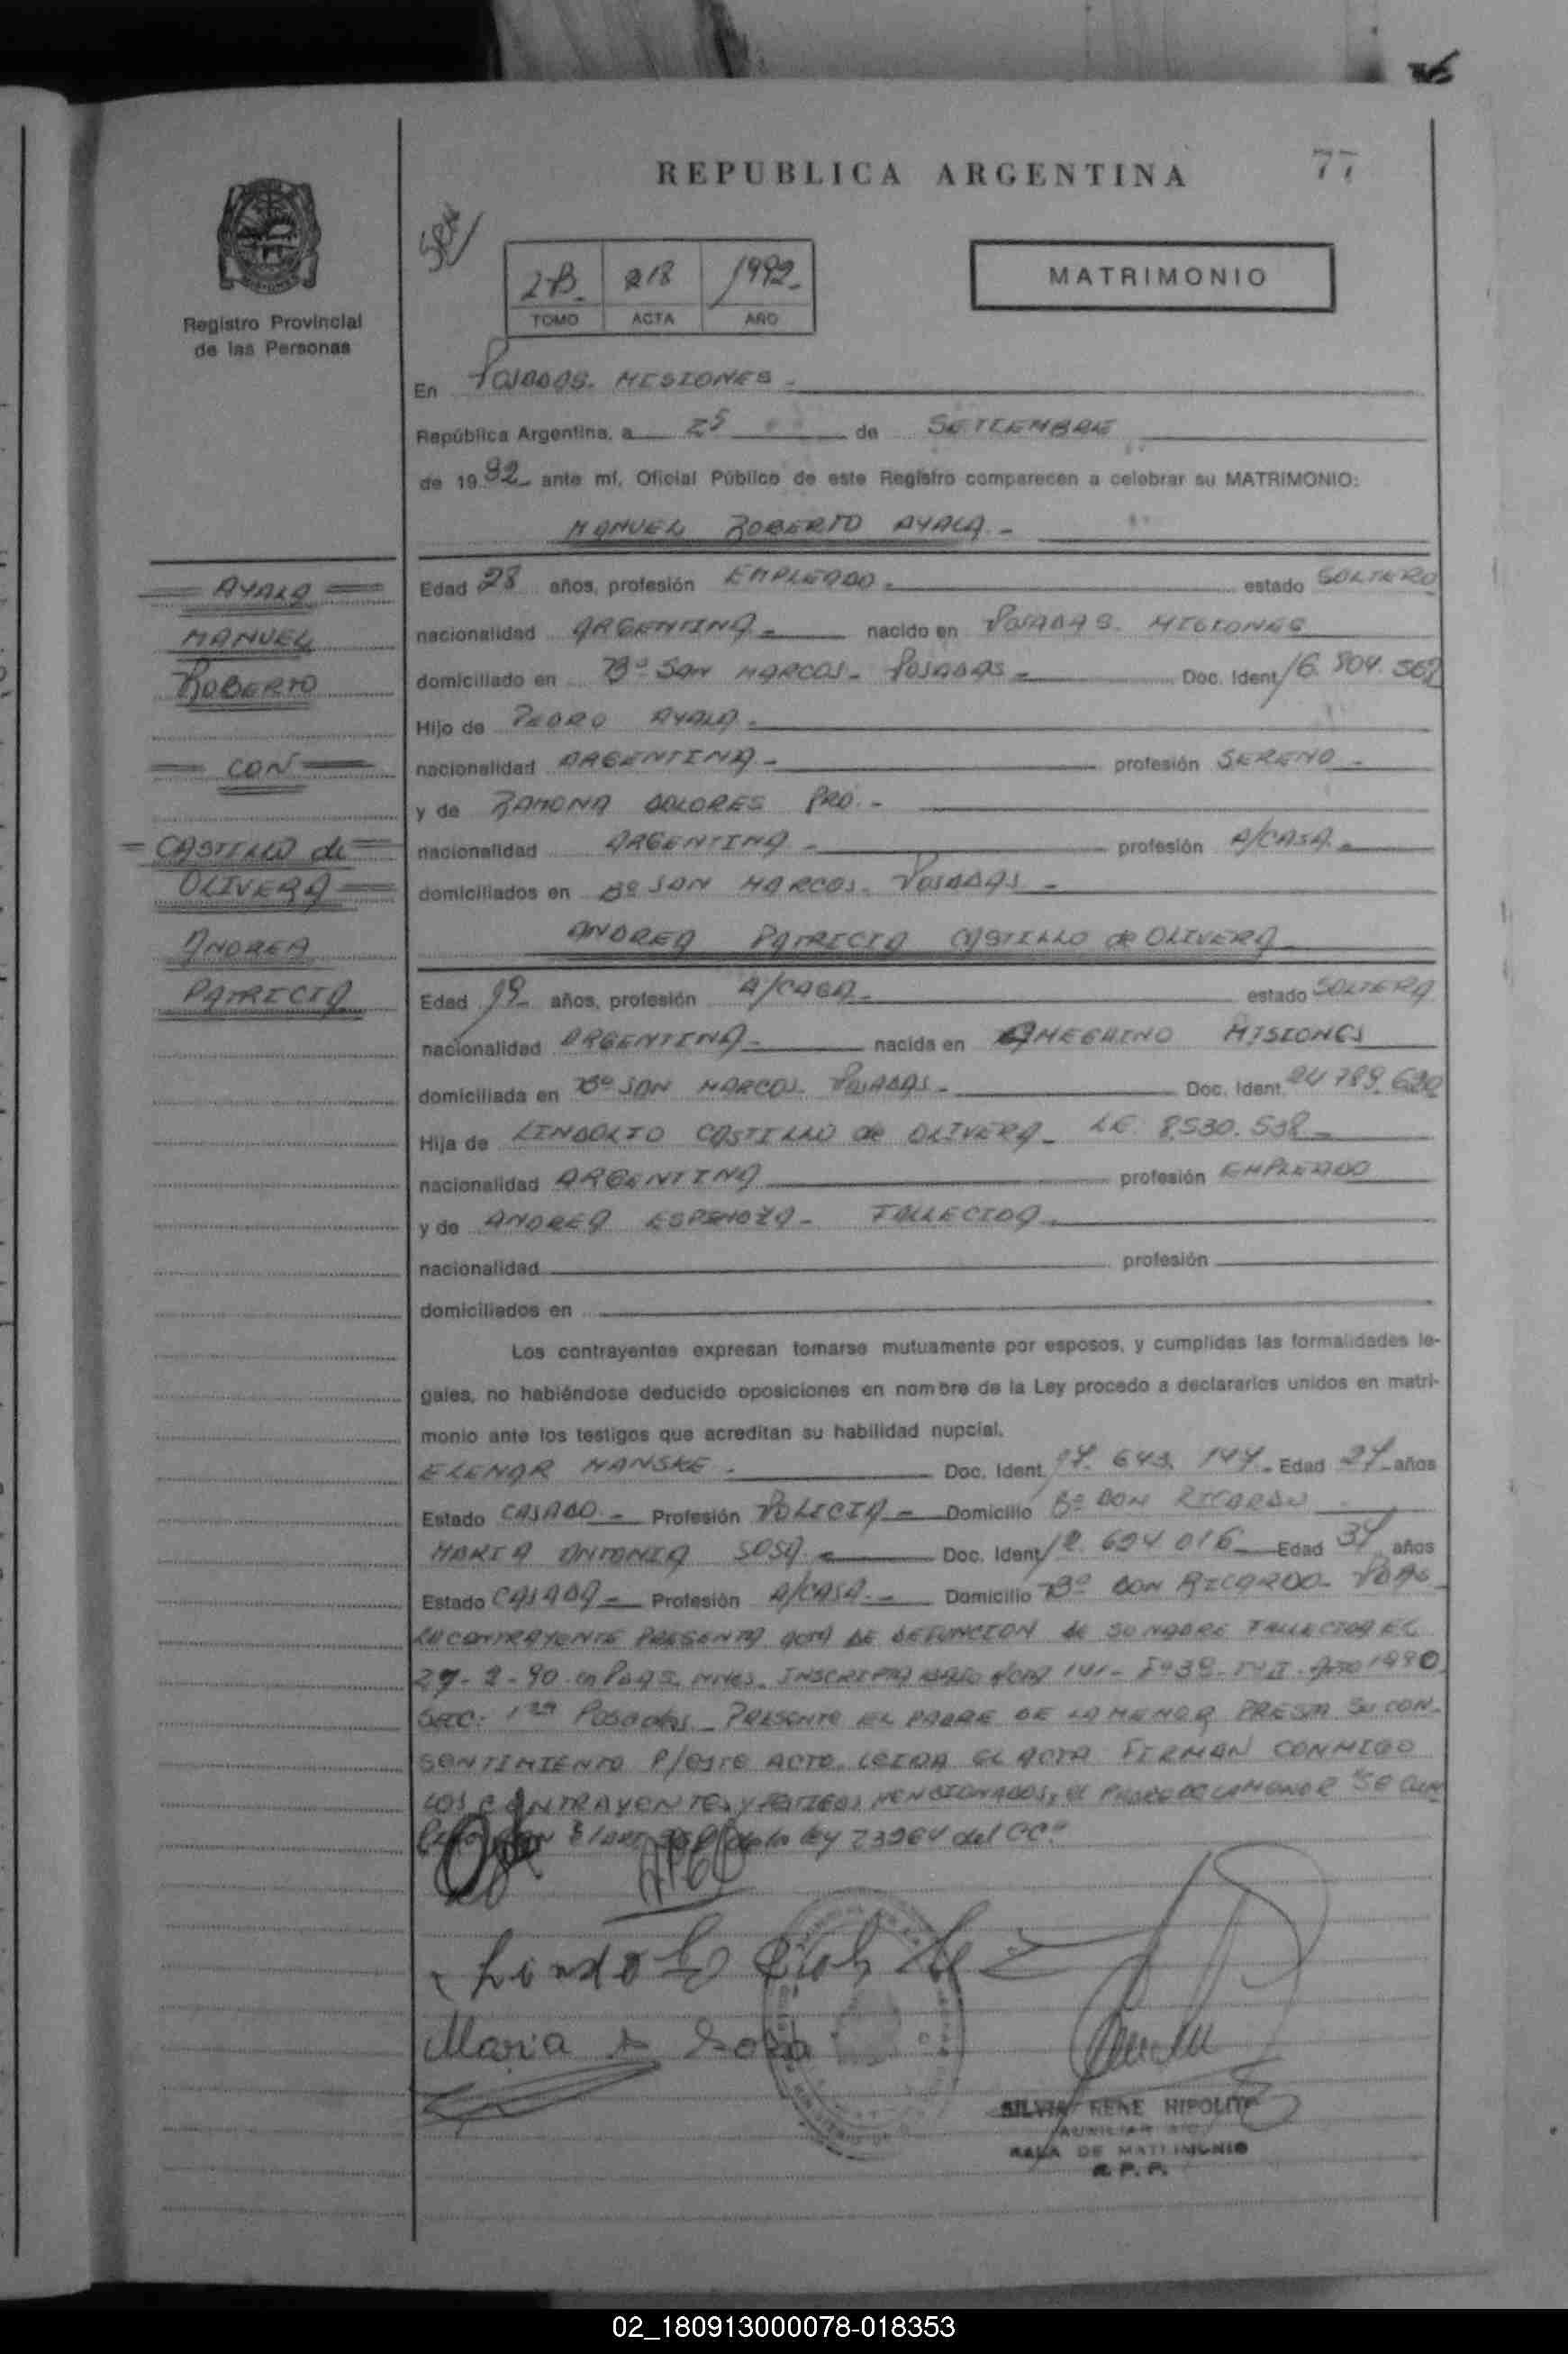 77
REPUBLICA ARGENTINA
2B. 218 1992.
TOMO ACTA AÑO
MATRIMONIO
Registro Provincial
de las Personas
En POSADAS. MISIONES -
República Argentina, a 25 de SETIEMBRE
de 1992 ante mí, Oficial Público de este Registro comparecen a celebrar su MATRIMONIO:
MANUEL ROBERTO AYALA. -
AYALA
MANUEL
ROBERTO
CON
CASTILLO de
OLIVERA
ANDREA
PATRICIA
Edad 28 años, profesión EMPLEADO. estado SOLTERO
nacionalidad ARGENTINA - nacido en POSADAS. MISIONES
domiciliado en Bº SAN MARCOS - POSADAS - Doc. Ident. 16.804.562
Hijo de PEDRO AYALA.
nacionalidad ARGENTINA - profesión SERENO -
y de RAMONA DOLORES PRO. -
nacionalidad ARGENTINA - profesión A/CASA.
domiciliados en Bº SAN MARCOS. POSADAS -
ANDREA PATRICIA CASTILLO de OLIVERA
Edad 19 años, profesión A/CASA - estado SOLTERA
nacionalidad ARGENTINA - nacida en AMEGHINO MISIONES
domiciliada en Bº SAN MARCOS. POSADAS - Doc. Ident. 24.789.620
Hija de LINDOLFO CASTILLO de OLIVERA - LE. 8530.538 -
nacionalidad ARGENTINA profesión EMPLEADO
y de ANDREA ESPINOZA - FALLECIDA
nacionalidad profesión
domiciliados en
Los contrayentes expresan tomarse mutuamente por esposos, y cumplidas las formalidades le-
gales, no habiéndose deducido oposiciones en nombre de la Ley procedo a declararlos unidos en matri-
monio ante los testigos que acreditan su habilidad nupcial.
ELENAR MANSKE. Doc. Ident. 17.643.147 - Edad 27 años
Estado CASADO - Profesión POLICIA - Domicilio Bº DON RICARDO
MARIA ANTONIA SOSA. Doc. Ident. 12.694.016 Edad 34 años
Estado CASADA - Profesión A/CASA. - Domicilio Bº DON RICARDO - PDAS
LA CONTRAYENTE PRESENTA ACTA DE DEFUNCION de SU MADRE FALLECIDA EL
27-2-90 en PDAS. MNES. INSCRIPTA BAJO ACTA 141- Fº 39- Tº II - AÑO 1990
SEC. 1ra Posadas - PRESENTE EL PADRE DE LA MENOR PRESTA SU CON-
SENTIMIENTO P/ESTE ACTO. LEIDA EL ACTA FIRMAN CONMIGO
LOS CONTRAYENTES Y TESTIGOS MENCIONADOS, EL PADRE DE LA MENOR "SE CUM
de la ley 23264 del CC"
Maria A Sosa
SILVIA RENE HIPOLITO
AUXILIAR
SALA DE MATRIMONIO
R.P.P.
02_180913000078-018353